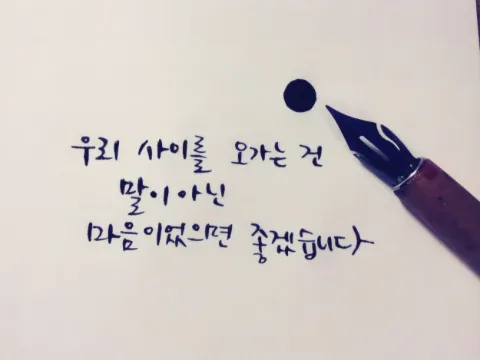 우리 사이를 오가는 건
말이 아닌
마음이었으면 좋겠습니다